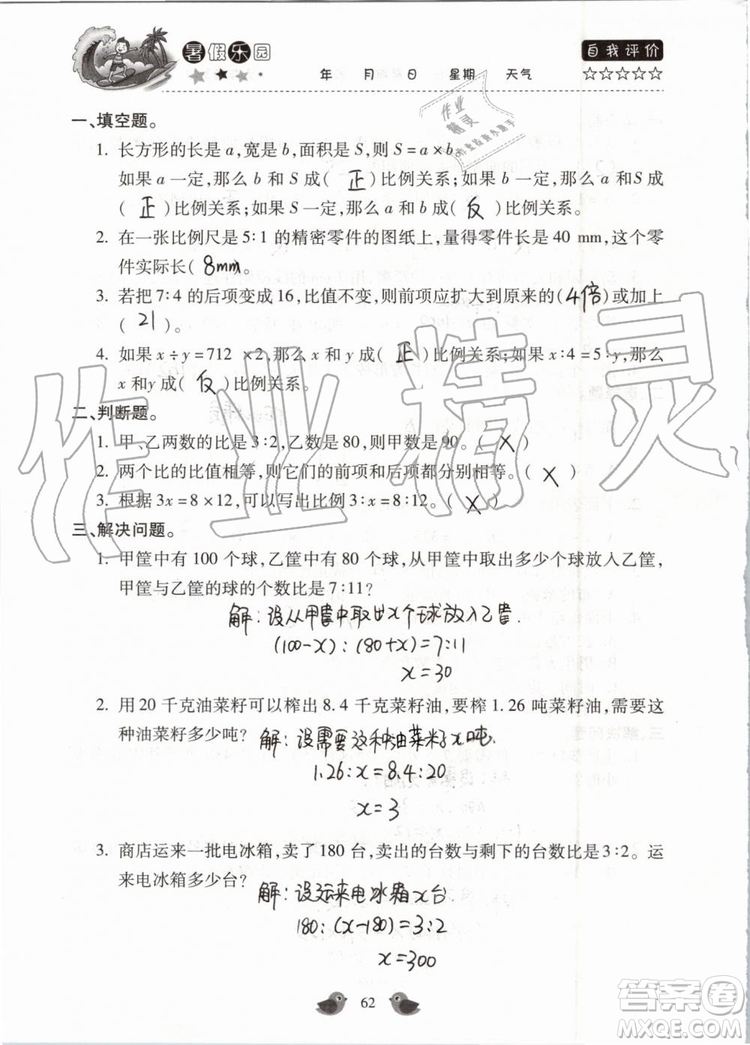 暑假乐园
自我评价
年 月 日 星期 天气 ☆☆☆☆☆
一、填空题。
1. 长方形的长是 a,宽是 b,面积是 S,则 S=a×b。
如果 a 一定,那么 b 和 S 成( 正 )比例关系;如果 b 一定,那么 a 和 S 成
( 正 )比例关系;如果 S 一定,那么 a 和 b 成( 反 )比例关系。
2. 在一张比例尺是 5∶1 的精密零件的图纸上,量得零件长是 40 mm,这个零
件实际长( 8mm )。
3. 若把 7∶4 的后项变成 16,比值不变,则前项应扩大到原来的( 4倍 )或加上
( 21 )。
4. 如果 x÷y=712 ×2,那么 x 和 y 成( 正 )比例关系,如果 x∶4=5∶y,那么
x 和 y 成( 反 )比例关系。
二、判断题。
1. 甲、乙两数的比是 3∶2,乙数是 80,则甲数是 90。( X )
2. 两个比的比值相等,则它们的前项和后项都分别相等。( X )
3. 根据 3x=8×12,可以写出比例 3∶x=8∶12。( X )
三、解决问题。
1. 甲筐中有 100 个球,乙筐中有 80 个球,从甲筐中取出多少个球放入乙筐,
甲筐与乙筐的球的个数比是 7∶11?
解:设从甲筐中取出x个球放入乙筐.
(100-x):(80+x)=7:11
x=30
2. 用 20 千克油菜籽可以榨出 8.4 千克菜籽油,要榨 1.26 吨菜籽油,需要这
种油菜籽多少吨?
解:设需要这种油菜籽x吨.
1.26:x=8.4:20
x=3
3. 商店运来一批电冰箱,卖了 180 台,卖出的台数与剩下的台数比是 3∶2。运
来电冰箱多少台?
解:设运来电冰箱x台.
180:(x-180)=3:2
x=300
62
作业精灵
答案圈
MXQE.COM